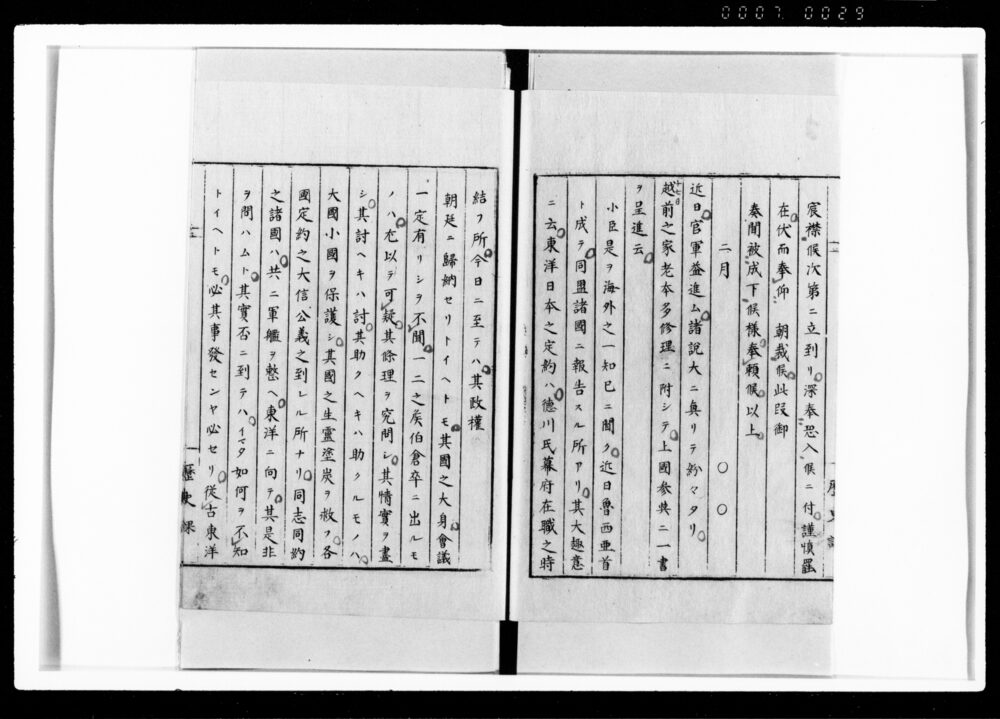 0007 0029
宸襟候次第ニ立到リ深奉恐入候ニ付謹慎罷
在伏而奉仰　朝裁候此段御
奏聞被成下候様奉頼候以上
二月　〇〇
近日官軍益進ム諸説大ニ真リテ紛々タリ
十七日
越前之家老本多修理ニ附シテ上國参與ニ一書
ヲ呈進云
小臣是ヲ海外之一知已ニ聞ク近日魯西亜首
ト成テ同盟諸國ニ報告スル所アリ其大趣意
ニ云東洋日本之定約ハ徳川氏幕府在職之時
結フ所今日ニ至テハ其政權
朝廷ニ歸納セリトイヘトモ其國之大身會議
一定有リシヲ不聞一二之矦伯倉卒ニ出ルモ
ノハ尤以テ可疑其條理ヲ究問シ其情實ヲ盡
シ其討ヘキハ討其助クヘキハ助クルモノハ
大國小國ヲ保護シ其國之生靈塗炭ヲ救フ各
國定約之大信公義之到レル所ナリ同志同約
之諸國ハ共ニ軍艦ヲ整ヘ東洋ニ向テ其是非
ヲ問ハムト其實否ニ到テハイマタ如何ヲ不知
トイヘトモ必其事發センヤ必セリ従古東洋
歴史課